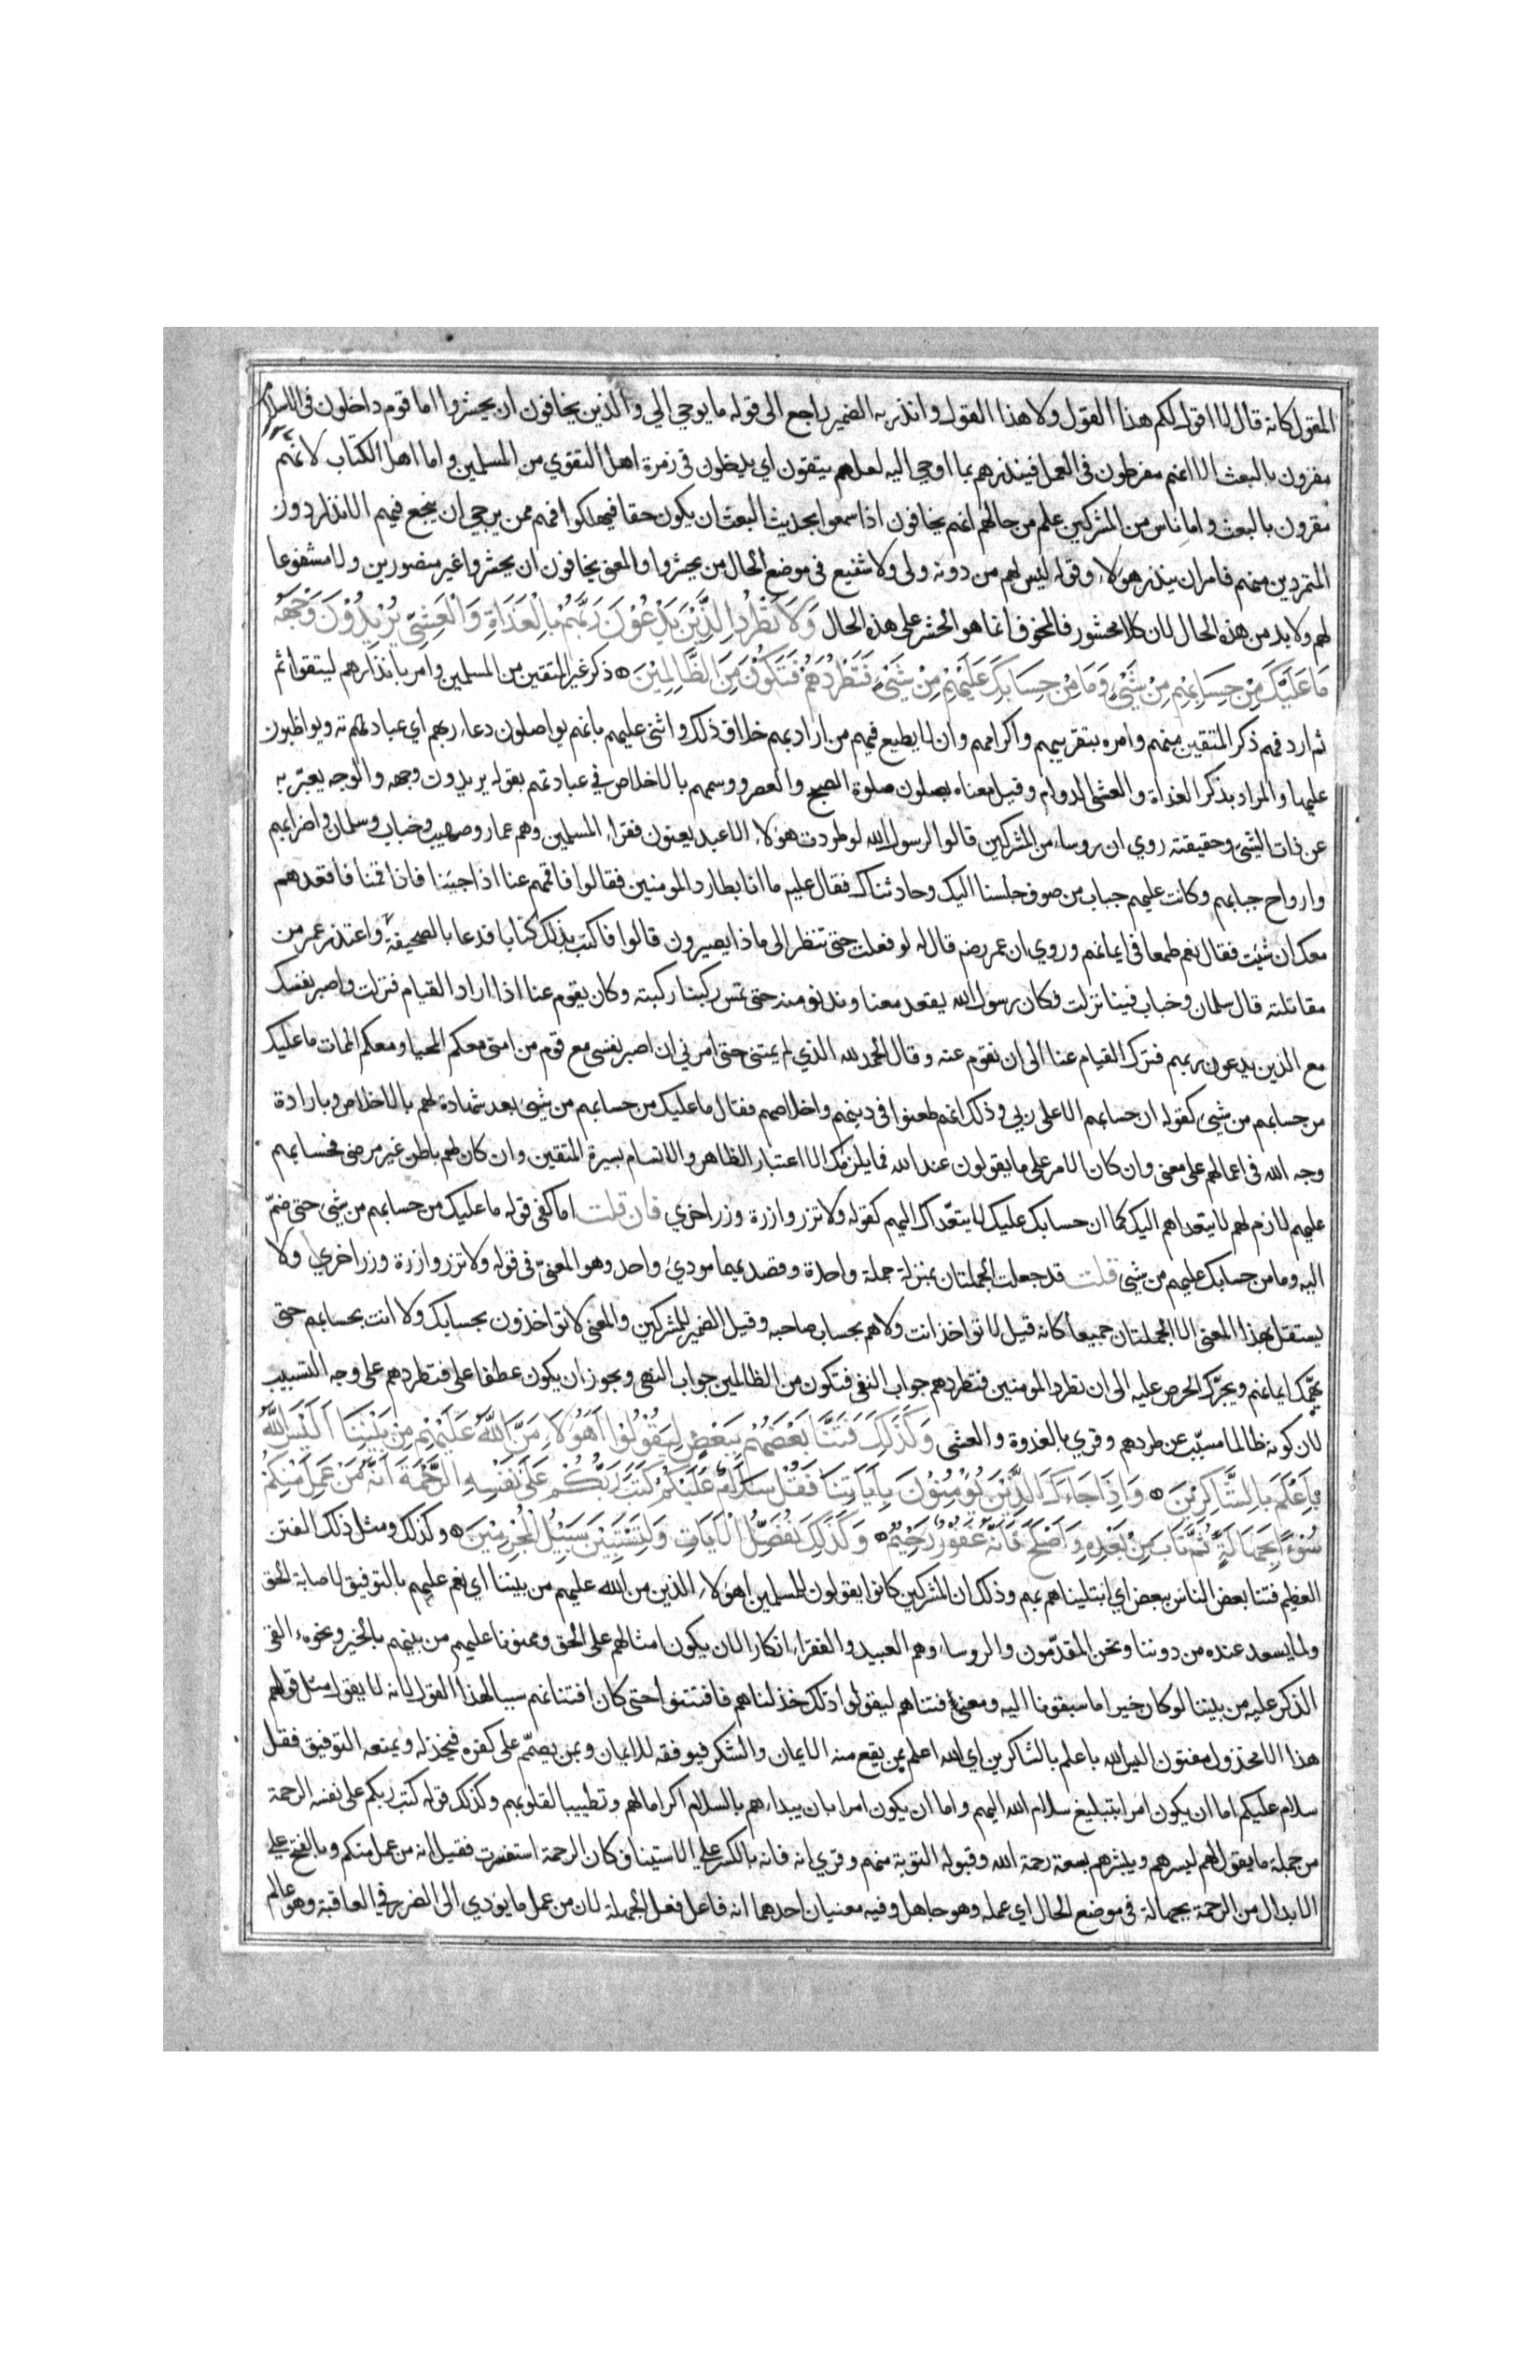 المقول كانه قال لا اقول لكم هذا القول ولا هذا القول وانذر به الضمير راجع الى قوله ما يوحي الي والذين يخافون ان يحشروا اما قوم داخلون في الاسلام
مقرون بالبعث الا انهم مفرطون في العمل فينذرهم بما اوحي اليه لعلهم يتقون اي يدخلون في زمرة اهل التقوي من المسلمين واما اهل الكتاب لانهم
مقرون بالبعث واما ناس من المشركين علم من حالهم انهم يخافون اذا سمعوا بحديث البعث ان يكون حقا فيهلكوا فهم ممن يرجي ان ينجع فيهم الانذار دون
المتمردين منهم فامر ان ينذر هولاء وقوله ليس لهم من دونه ولى ولا شفيع فى موضع الحال من يحشروا والمعنى يخافون ان يحشروا غير منصورين ولا مشفوعا
لهم ولا بد من هذه الحال لان كلا محشور فالمخوف انما هو الحشر على هذه الحال وَلَا تَطْرُدِ الَّذِيْنَ يَدْعُوْنَ رَبَّهُمْ بِالْغَدَاةِ وَالْعَشِيِّ يُرِيْدُوْنَ وَجْهَهُ
مَا عَلَيْكَ مِنْ حِسَابِهِمْ مِنْ شَيْءٍ وَمَا مِنْ حِسَابِكَ عَلَيْهِمْ مِنْ شَيْءٍ فَتَطْرُدَهُمْ فَتَكُوْنَ مِنَ الظَّالِمِيْنَ ذكر غير المتقين من المسلمين وامر بانذارهم ليتقوا ثم
ثم اردفهم ذكر المتقين منهم وامره بتقريبهم واكرامهم وان لا يطيع فيهم من اراد بهم خلاف ذلك واثنى عليهم بانهم يواصلون دعاء ربهم اي عبادتهم ته ويواظبون
عليها والمراد بذكر الغداة والعشى الدوام وقيل معناه يصلون صلوة الصبح والعصر ووسمهم بالاخلاص في عبادتهم بقوله يريدون وجهه والوجه يعبّر به
عن ذات الشىء وحقيقته روي ان روساء من المشركين قالوا لرسول الله لو طردت هولاء الاعبد يعنون فقراء المسلمين وهم عمار وصهيب وخباب وسلمان واضرابهم
وارواح جبابهم وكانت عليهم جباب من صوف جلسنا اليك وحادثناك فقال عليه ما انا بطارد المومنين فقالوا فاقمهم عنا اذا جينا فاذا قمنا فاقعدهم
معك ان شيت فقال نعم طمعا في ايمانهم وروي ان عمر رضه قال له لو فعلت حتى تنظر الى ماذا يصيرون قالوا فاكتب بذلك كتابا فدعا بالصحيفة واعتذر عمر من
مقالته قال سلمان وخباب فينا نزلت فكان رسول الله يقعد معنا وندنو منه حتى تمس ركبنا ركبته وكان يقوم عنا اذا اراد القيام فنزلت واصبر نفسك
مع الذين يدعون ربهم فترك القيام عنا الى ان نقوم عنه وقال الحمد لله الذي لم يمتنى حتى امرني ان اصبر نفسى مع قوم من امتى معكم المحيا ومعكم الممات ما عليك
من حسابهم من شيء كقوله ان حسابهم الا على ربي وذلك انهم طعنوا في دينهم واخلاصهم فقال ما عليك من حسابهم من شيء بعد شهادة لهم بالاخلاص وبارادة
وجه الله في اعمالهم على معنى وان كان الامر على ما يقولون عند الله فما يلزمك الا اعتبار الظاهر والاتسام بسيرة المتقين وان كان لهم باطن غير مرضى فحسابهم
عليهم لازم لهم لا يتعداهم اليك كما ان حسابك عليك لا يتعدّاك اليهم كقوله ولا تزر وازرة وزر اخري فان قلت اما كفى قوله ما عليك من حسابهم من شيء حتى ضمّ
اليه وما من حسابك عليهم من شيء قلت قد جعلت الجملتان بمنزلة جملة واحدة وقصد بهما مودي واحد وهو المعنىّ فى قوله ولا تزر وازرة وزر اخري ولا
يستقل بهذا المعنى الا الجملتان جميعا كانه قيل لا تواخذ انت ولا هم بحساب صاحبه وقيل الضمير للمشركين والمعنى لا تواخذون بحسابك ولا انت بحسابهم حتى
يهمّك ايمانهم ويحرّك الحرص عليه الى ان تطرد المومنين فتطردهم جواب النفى فتكون من الظالمين جواب النهى ويجوز ان يكون عطفا على فتطردهم على وجه التسبيب
لان كونه ظالما مسبّب عن طردهم وقري بالغدوة والعشى وَكَذَلِكَ فَتَنَّا بَعْضَهُمْ بِبَعْضٍ لِيَقُوْلُوْا أَهَؤُلَاءِ مَنَّ اللهُ عَلَيْهِمْ مِنْ بَيْنِنَا أَلَيْسَ اللهُ
بِأَعْلَمَ بِالشَّاكِرِيْنَ وَاِذَا جَاءَكَ الَّذِيْنَ يُؤْمِنُوْنَ بِآيَاتِنَا فَقُلْ سَلَامٌ عَلَيْكُمْ كَتَبَ رَبُّكُمْ عَلَى نَفْسِهِ الرَّحْمَةَ اَنَّهُ مَنْ عَمِلَ مِنْكُمْ
سُوْءًا بِجَهَالَةٍ ثُمَّ تَابَ مِنْ بَعْدِهِ وَاَصْلَحَ فَاَنَّهُ غَفُوْرٌ رَحِيْمٌ وَكَذَلِكَ نُفَصِّلُ الْآيَاتِ وَلِتَسْتَبِيْنَ سَبِيْلُ الْمُجْرِمِيْنَ وكذلك ومثل ذلك الفتن
العظيم فتنا بعض الناس ببعض اي ابتليناهم بهم وذلك ان المشركين كانوا يقولون للمسلمين اهولاء الذين من الله عليهم من بيننا اي انعم عليهم بالتوفيق لاصابة الحق
ولما يسعد عنده من دوننا ونحن المقدّمون والروساء وهم العبيد والفقراء انكارا لان يكون امثالهم على الحق وممنونا عليهم من بينهم بالخير ونحوه القى
الذكر عليه من بيننا لو كان خيرا ما سبقونا اليه ومعنى فتناهم ليقولوا ذلك خذلناهم فافتتنوا حتى كان افتتانهم سببا لهذا القول لانه لا يقول مثل قولهم
هذا الا مخذول مفتون اليس الله باعلم بالشاكرين اي الله اعلم بمن يقع منه الايمان والشكر فيوفقه للايمان وبمن يصمّم على كفره فيخذله ويمنعه التوفيق فقل
سلام عليكم اما ان يكون امرا بتبليغ سلام الله اليهم واما ان يكون امرا بان يبداءهم بالسلام اكراما لهم وتطييبا لقلوبهم وكذلك قوله كتب ربكم على نفسه الرحمة
من جملة ما يقول لهم ليسرهم ويبشرهم بسعة رحمة الله وقبوله التوبة منهم وقري انه فانه بالكسر على الاستيناف كان الرحمة استفسرت فقيل انه من عمل منكم وبالفتح على
الابدال من الرحمة بجهالة في موضع الحال اي عمله وهو جاهل وفيه معنيان احدهما انه فاعل فعل الجهلة لان من عمل ما يودي الى الضرر في العاقبة وهو عالم